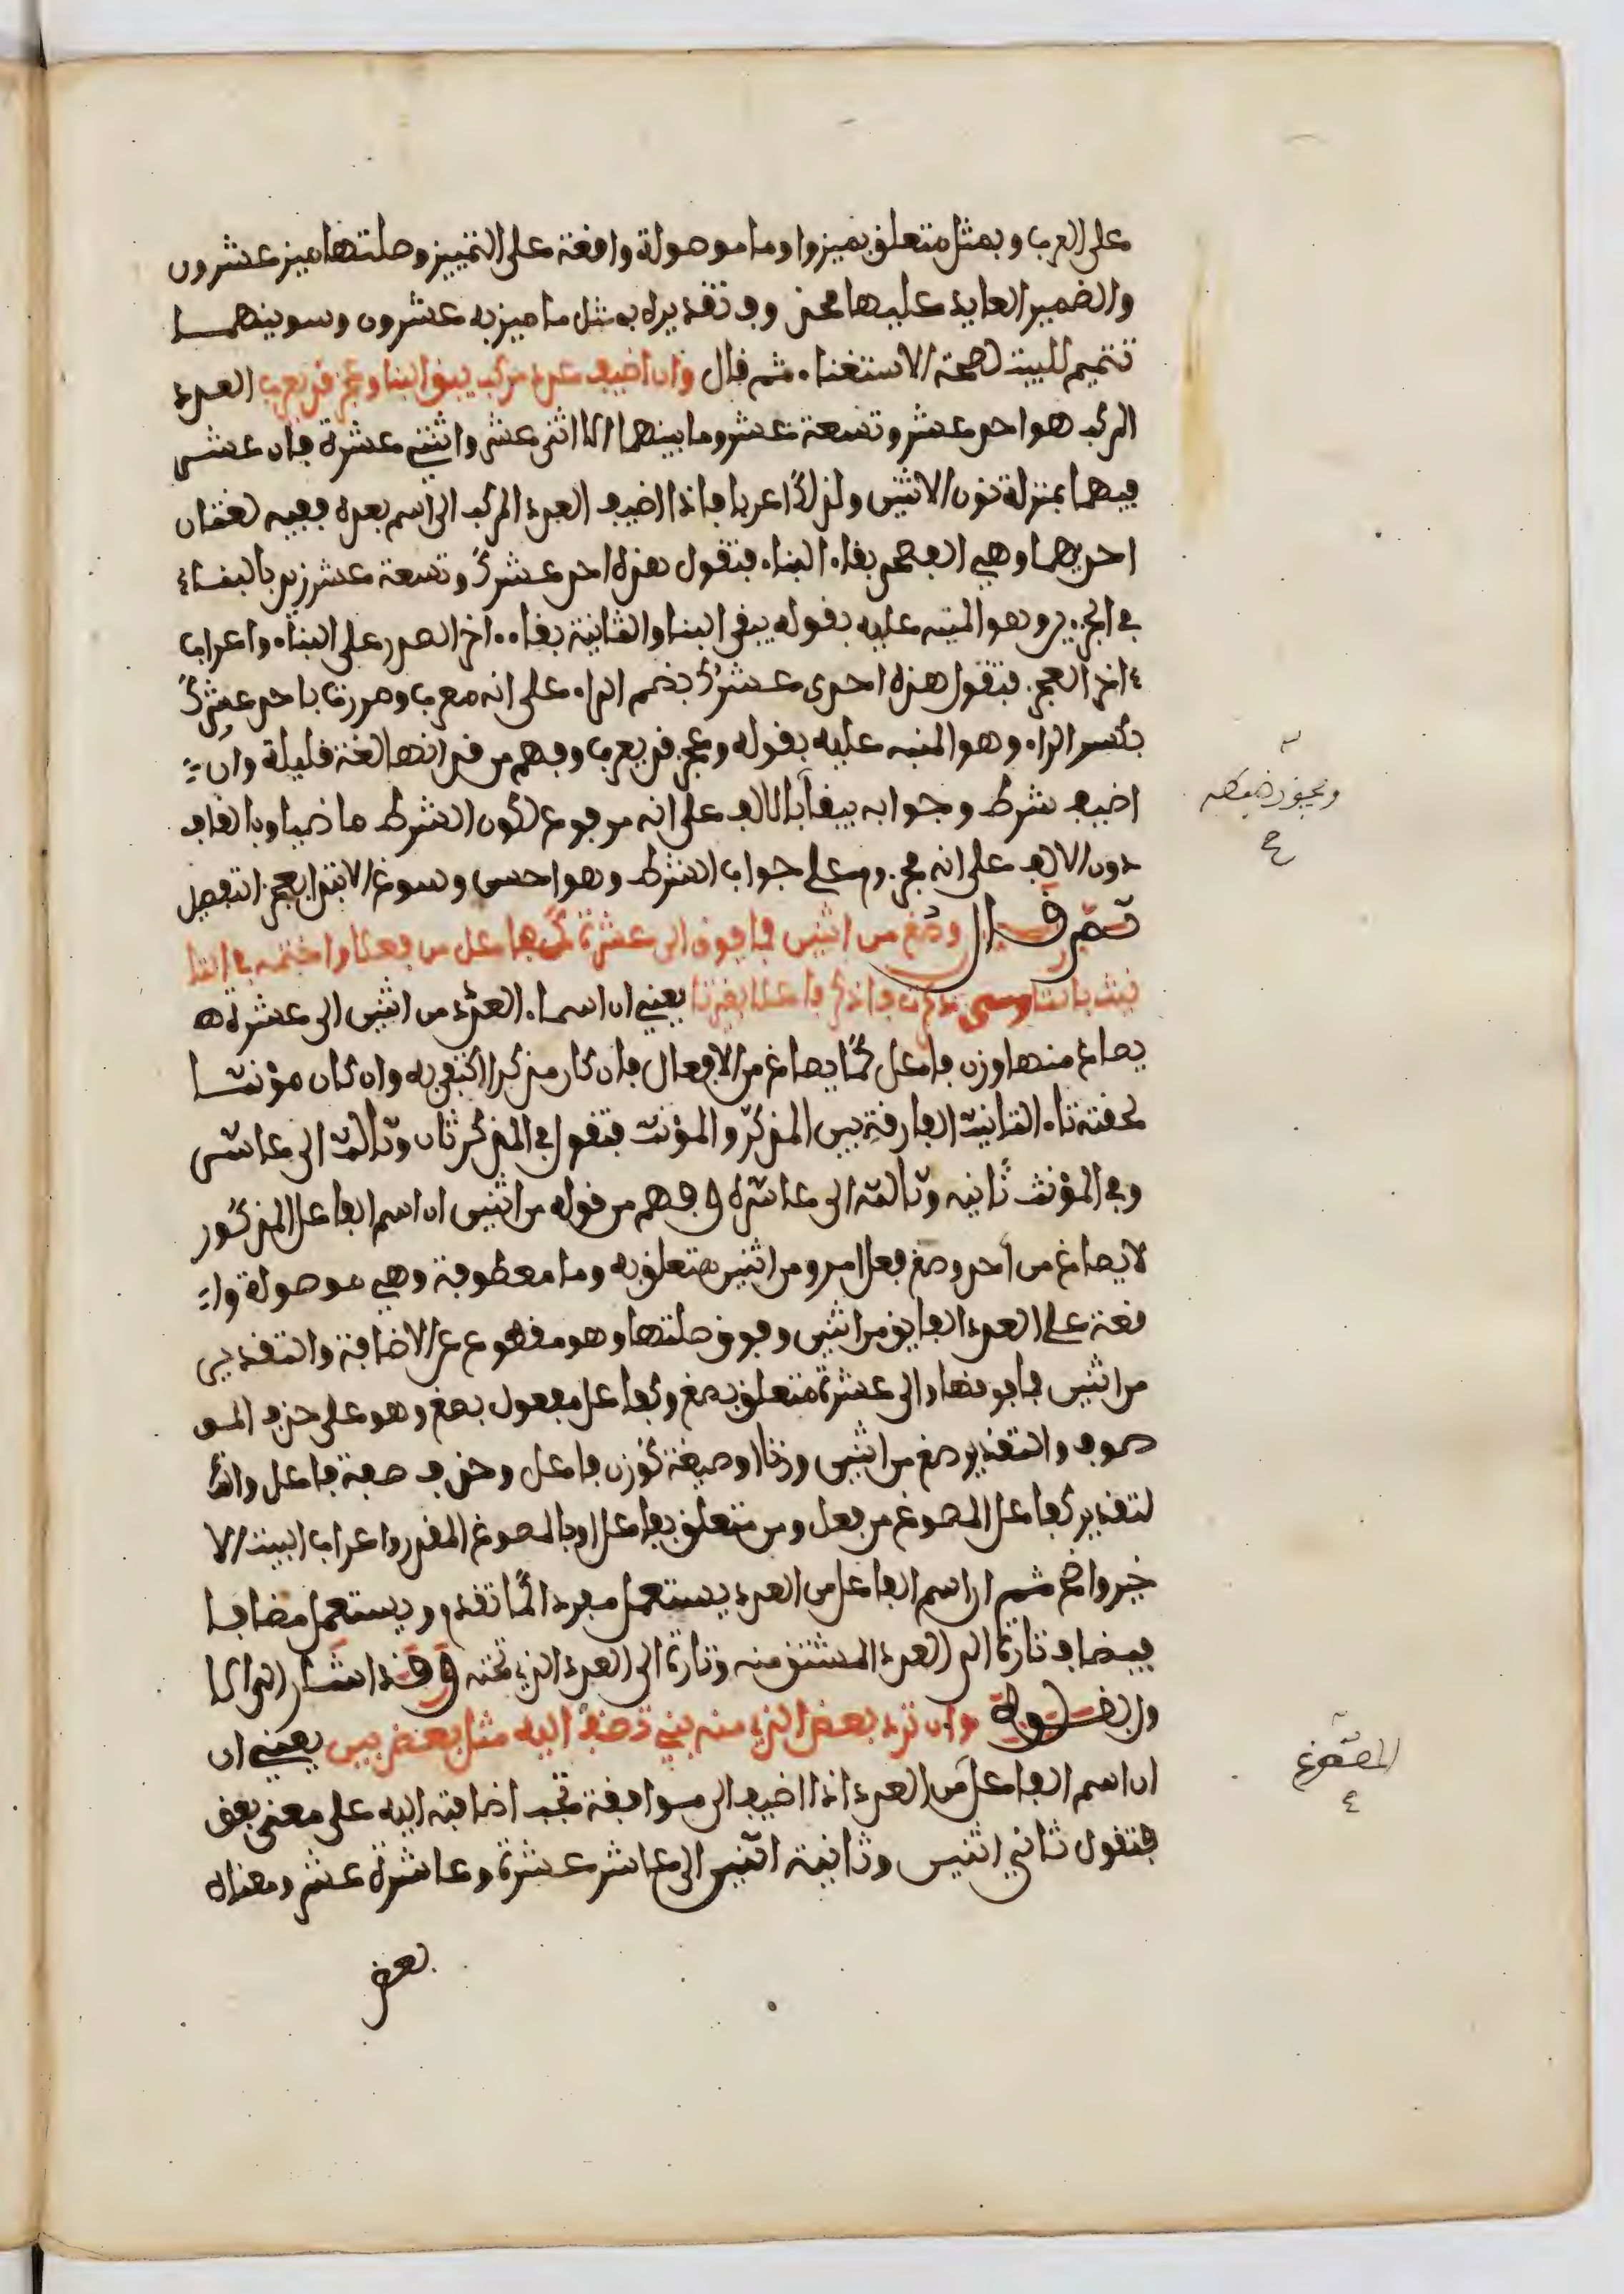 على العرب وبمثل متعلق بميزوا وما موصولة واقعة على التمييز وصلتها ميز عشرون
والضمير العايد عليها محذوف تقديره بمثل ما ميز به عشرون وسوينهما
تتميم للبيت لصحة الاستغناء ثم قال وان اضيف عدد مركب يبق البنا وعجز قد يعرب العدد
المركب هو احد عشر وتسعة عشر وما بينهما الا اثنى عشر واثنتي عشرة فان عشر
فيهما بمنزلة نون الاثنين ولذلك اعربا فاذا اضيف العدد المركب الى اسم بعده ففيه لغتان
احديهما وهي الفصحى بقاء البناء فتقول هذه احد عشرك وتسعة عشر زيد بالبقاء
في الجزءين وهو المنبه عليه بقوله يبقى البنا والثانية بقاء اخر الصدر على البناء واعراب
اخر العجز فتقول هذه احدى عشرك بضم الراء على انه معرب ومررت باحد عشرك
بكسر الراء وهو المنبه عليه بقوله وعجز قد يعرب وفهم من قد انها لغة قليلة وان
اضيف شرط وجوابه يبقا بالالف على انه مرفوع لكون الشرط ماضيا وبالقاف
دون الالف على انه مجزوم على جواب الشرط وهو احسن وسوغ الابتدا بعجز التفصيل
ثم قال وصغ من اثنين فما فوق الى عشرة كفاعل من فعلا واختمه في التا
نيث بالتا ومتى ذكرت فاذكر فاعلا بغير تا يعني ان اسماء العدد من اثنين الى عشرة
يصاغ منها وزن فاعل كما يصاغ من الافعال فان كان مذكرا اكتفي به وان كان مؤنثا
لحقته تاء التانيث الفارقة بين المذكر والمؤنث فتقول في المذكر ثان وثالث الى عاشر
وفي المؤنث ثانية وثالثة الى عاشرة وفهم من قوله من اثنين ان اسم الفاعل المذكور
لا يصاغ من احد وصغ فعل امر ومن اثنين متعلق به وما معطوفة وهي موصولة وا
قعة على العدد الفايق من اثنين وفوق صلتها وهو مقطوع عن الاضافة والتقدير
من اثنين فما فوقها والى عشرة متعلق بصغ وكفاعل مفعول بصغ وهو على حذف المو
صوف والتقدير صغ من اثنين وزنا او صيغة كوزن فاعل وحذف صفة فاعل وا
لتقدير كفاعل المصوغ من فعل ومن متعلق بفاعل او بالمصوغ المقدر واعراب البيت الا
خير واضح ثم ان اسم الفاعل من العدد يستعمل مفردا كما تقدم ويستعمل مضافا
فيضاف تارة الى العدد المشتق منه وتارة الى العدد الذي تحته وقد اشار الى الا
ول بقوله وان ترد بعض الذي منه بني تضف اليه مثل بعض بين يعني ان
ان اسم الفاعل من العدد اذا اضيف الى موافقة تجب اضافته اليه على معنى بعض
فتقول ثاني اثنين وثانية اثنين الى عاشر عشرة وعاشرة عشر ومعناه
بعض
المصوغ